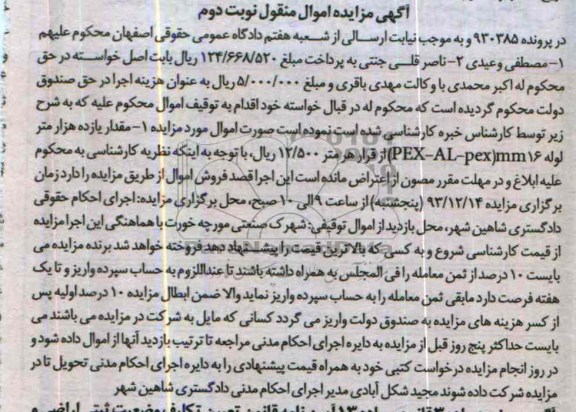 آگهی مزایده اموال منقول نوبت دوم
در پرونده ۹۳۰۳۸۵ و به موجب نیابت ارسالی از شعبه هفتم دادگاه عمومی حقوقی اصفهان محکوم علیهم
۱- مصطفی وعیدی ۲- ناصر قلی جنتی به پرداخت مبلغ ۱۲۴/۶۶۸/۵۲۰ ریال بابت اصل خواسته در حق
محکوم له اکبر محمدی با وکالت مهدی باقری و مبلغ ۵/۰۰۰/۰۰۰ ریال به عنوان هزینه اجرا در حق صندوق
دولت محکوم گردیده است که محکوم له در قبال خواسته خود اقدام به توقیف اموال محکوم علیه که به شرح
زیر توسط کارشناس خبره کارشناسی شده است نموده است صورت اموال مورد مزایده ۱- مقدار یازده هزار متر
لوله ۱۶ PEX-AL-pex)mm) از قرار هر متر ۱۲/۵۰۰ ریال، با توجه به اینکه نظریه کارشناسی به محکوم
علیه ابلاغ و در مهلت مقرر مصون از اعتراض مانده است این اجرا قصد فروش اموال از طریق مزایده را دارد زمان
برگزاری مزایده ۹۳/۱۲/۱۴ (پنجشنبه) از ساعت ۹ الی ۱۰ صبح، محل برگزاری مزایده: اجرای احکام حقوقی
دادگستری شاهین شهر، محل بازدید از اموال توقیفی: شهرک صنعتی مورچه خورت با هماهنگی این اجرا مزایده
از قیمت کارشناسی شروع و به کسی که بالاترین قیمت را پیشنهاد دهد فروخته خواهد شد برنده مزایده می
بایست ۱۰ درصد از ثمن معامله را فی المجلس به همراه داشته باشند تا عنداللزوم به حساب سپرده واریز و تا یک
هفته فرصت دارد مابقی ثمن معامله را به حساب سپرده واریز نماید والا ضمن ابطال مزایده ۱۰ درصد اولیه پس
از کسر هزینه های مزایده به صندوق دولت واریز می گردد کسانی که مایل به شرکت در مزایده می باشند می
بایست حداکثر پنج روز قبل از مزایده به دایره اجرای احکام مدنی مراجعه تا ترتیب بازدید آنها از اموال داده شود و
در روز انجام مزایده درخواست کتبی خود به همراه قیمت پیشنهادی را به دایره اجرای احکام مدنی تحویل تا در
مزایده شرکت داده شوند مجید شکل آبادی مدیر اجرای احکام مدنی دادگستری شاهین شهر